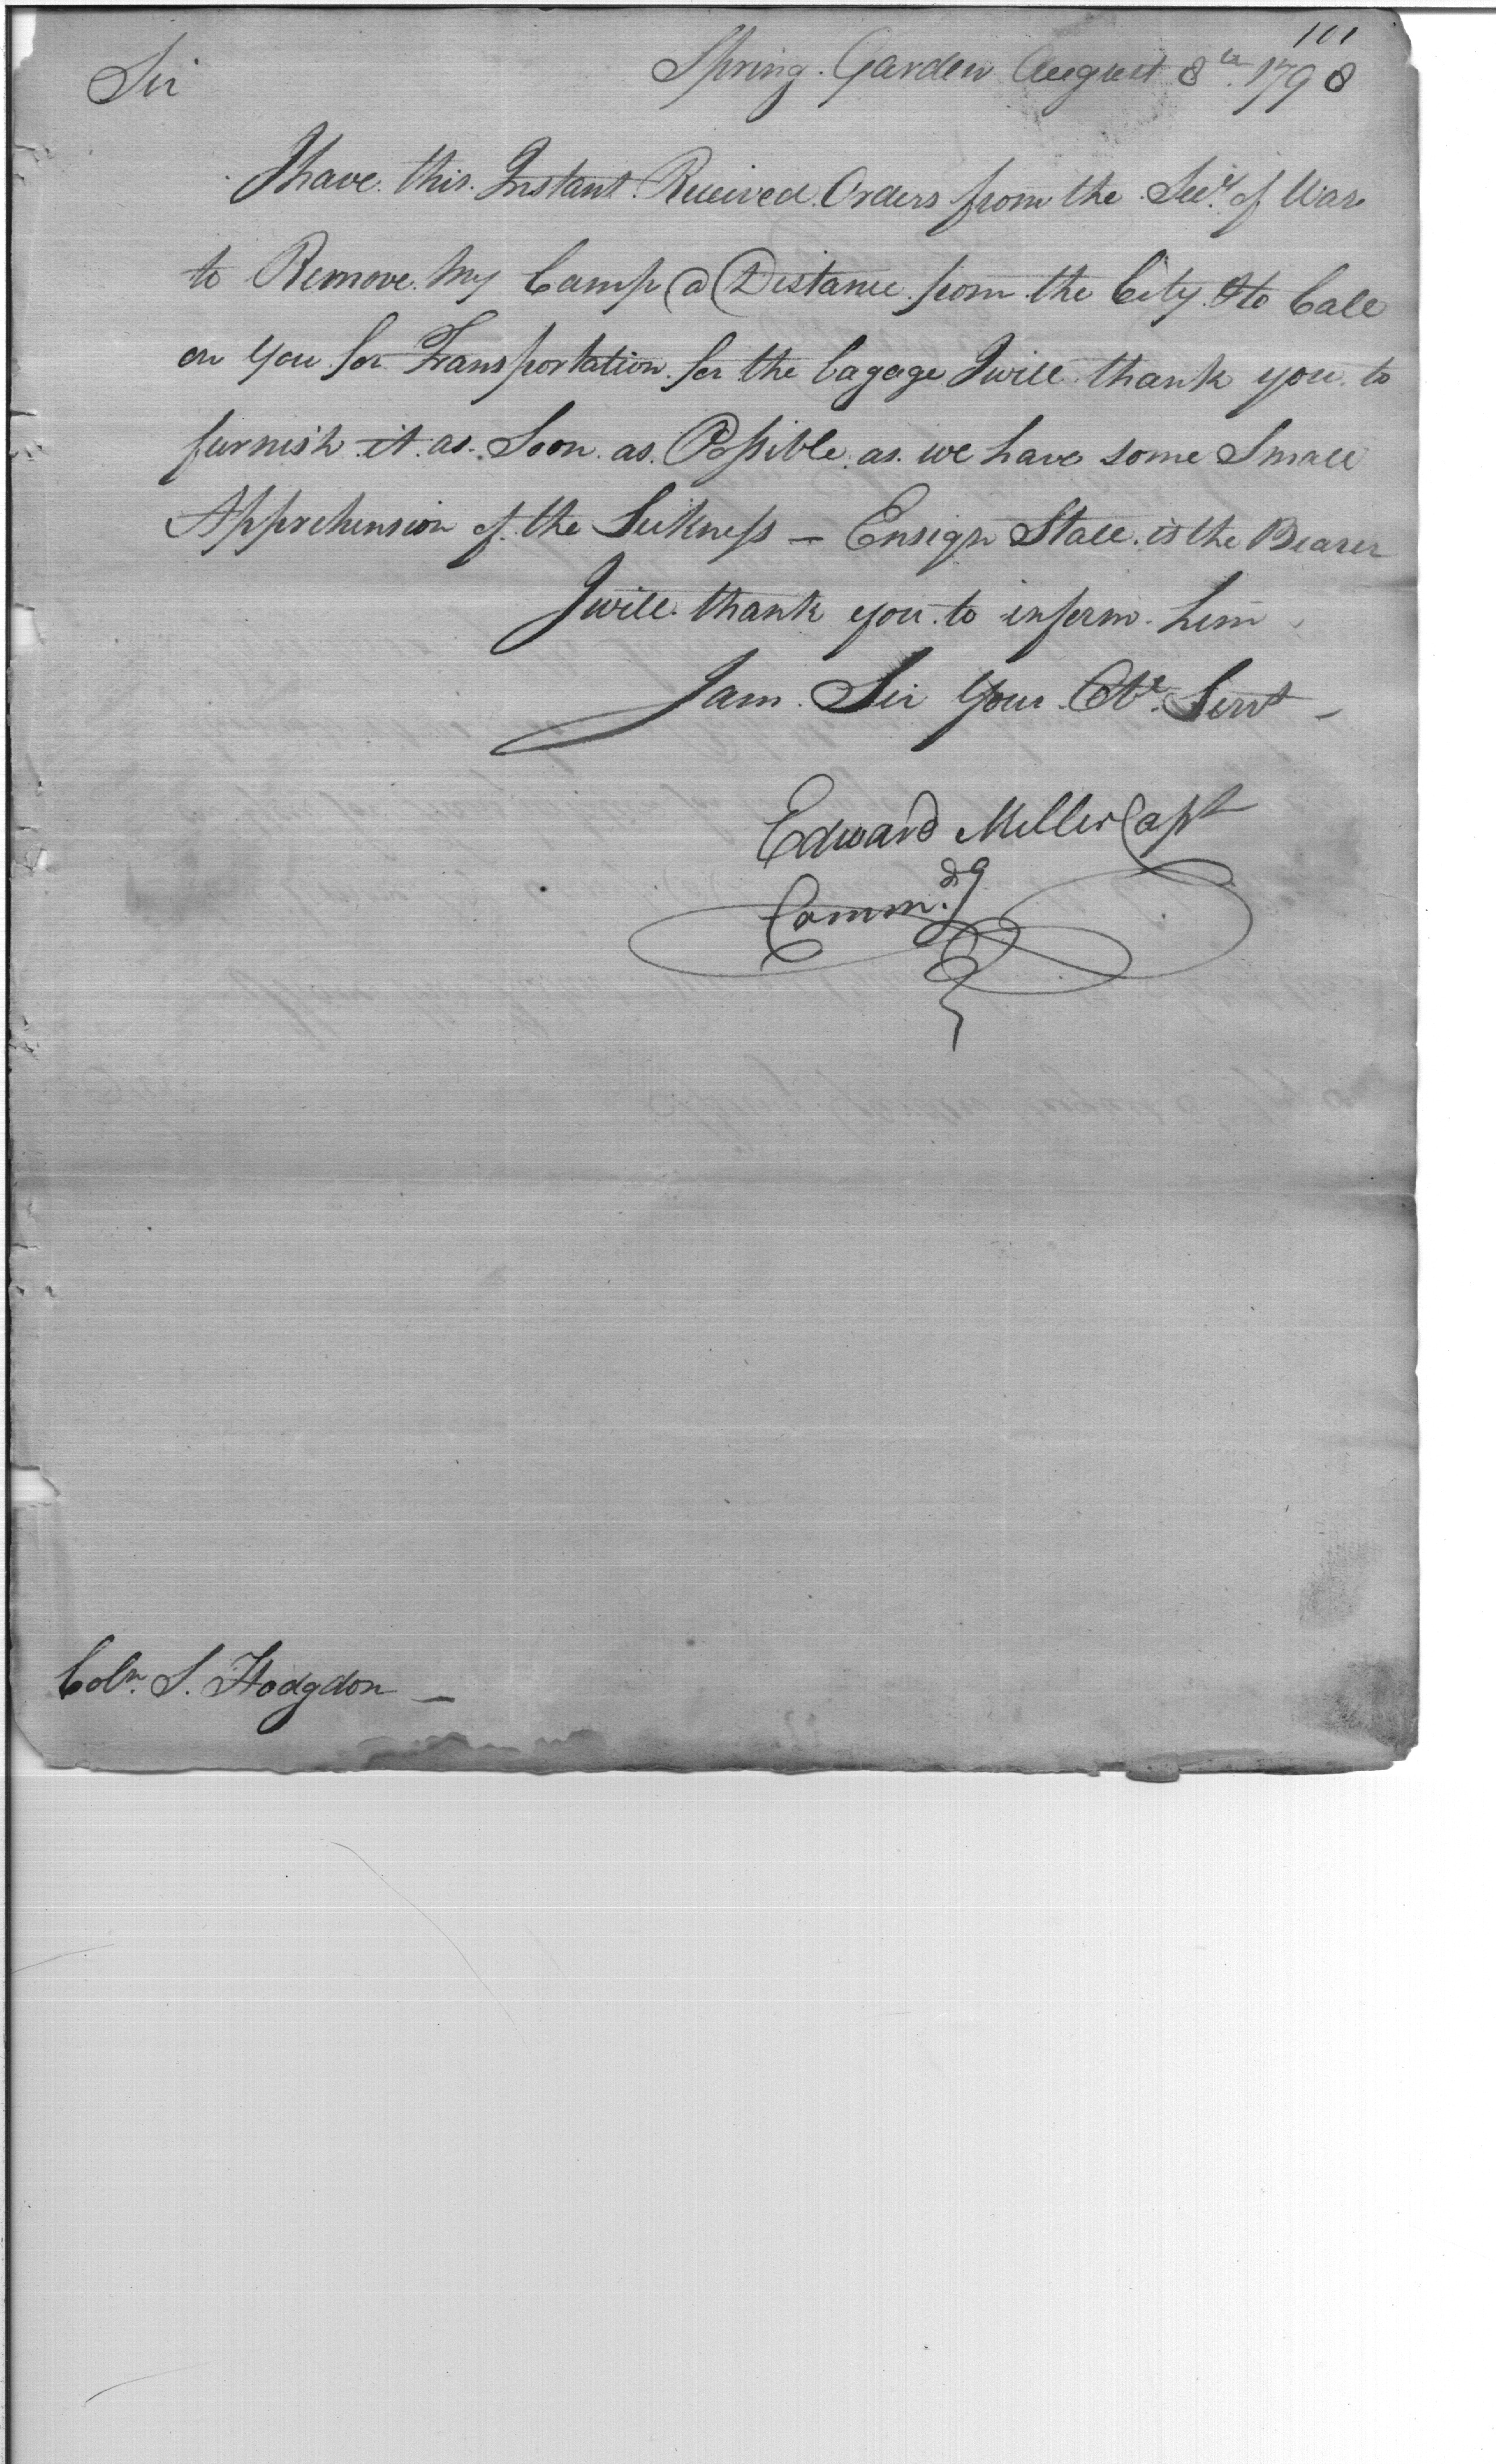 101
Sir Spring Garden August 8th 1798
I have this Instant Received Orders from the Secy of War
to Remove My Camp a Distance from the City & to Call
on you for Transportation for the bagage I will thank you to
furnish it as Soon as Possible as we have some Small
Apprehension of the Sickness — Ensign Stall is the Bearer
I will thank you to inform him
I am Sir Your Obt Servt —
Edward Miller Capt
Commdg
Coln. S. Hodgdon —